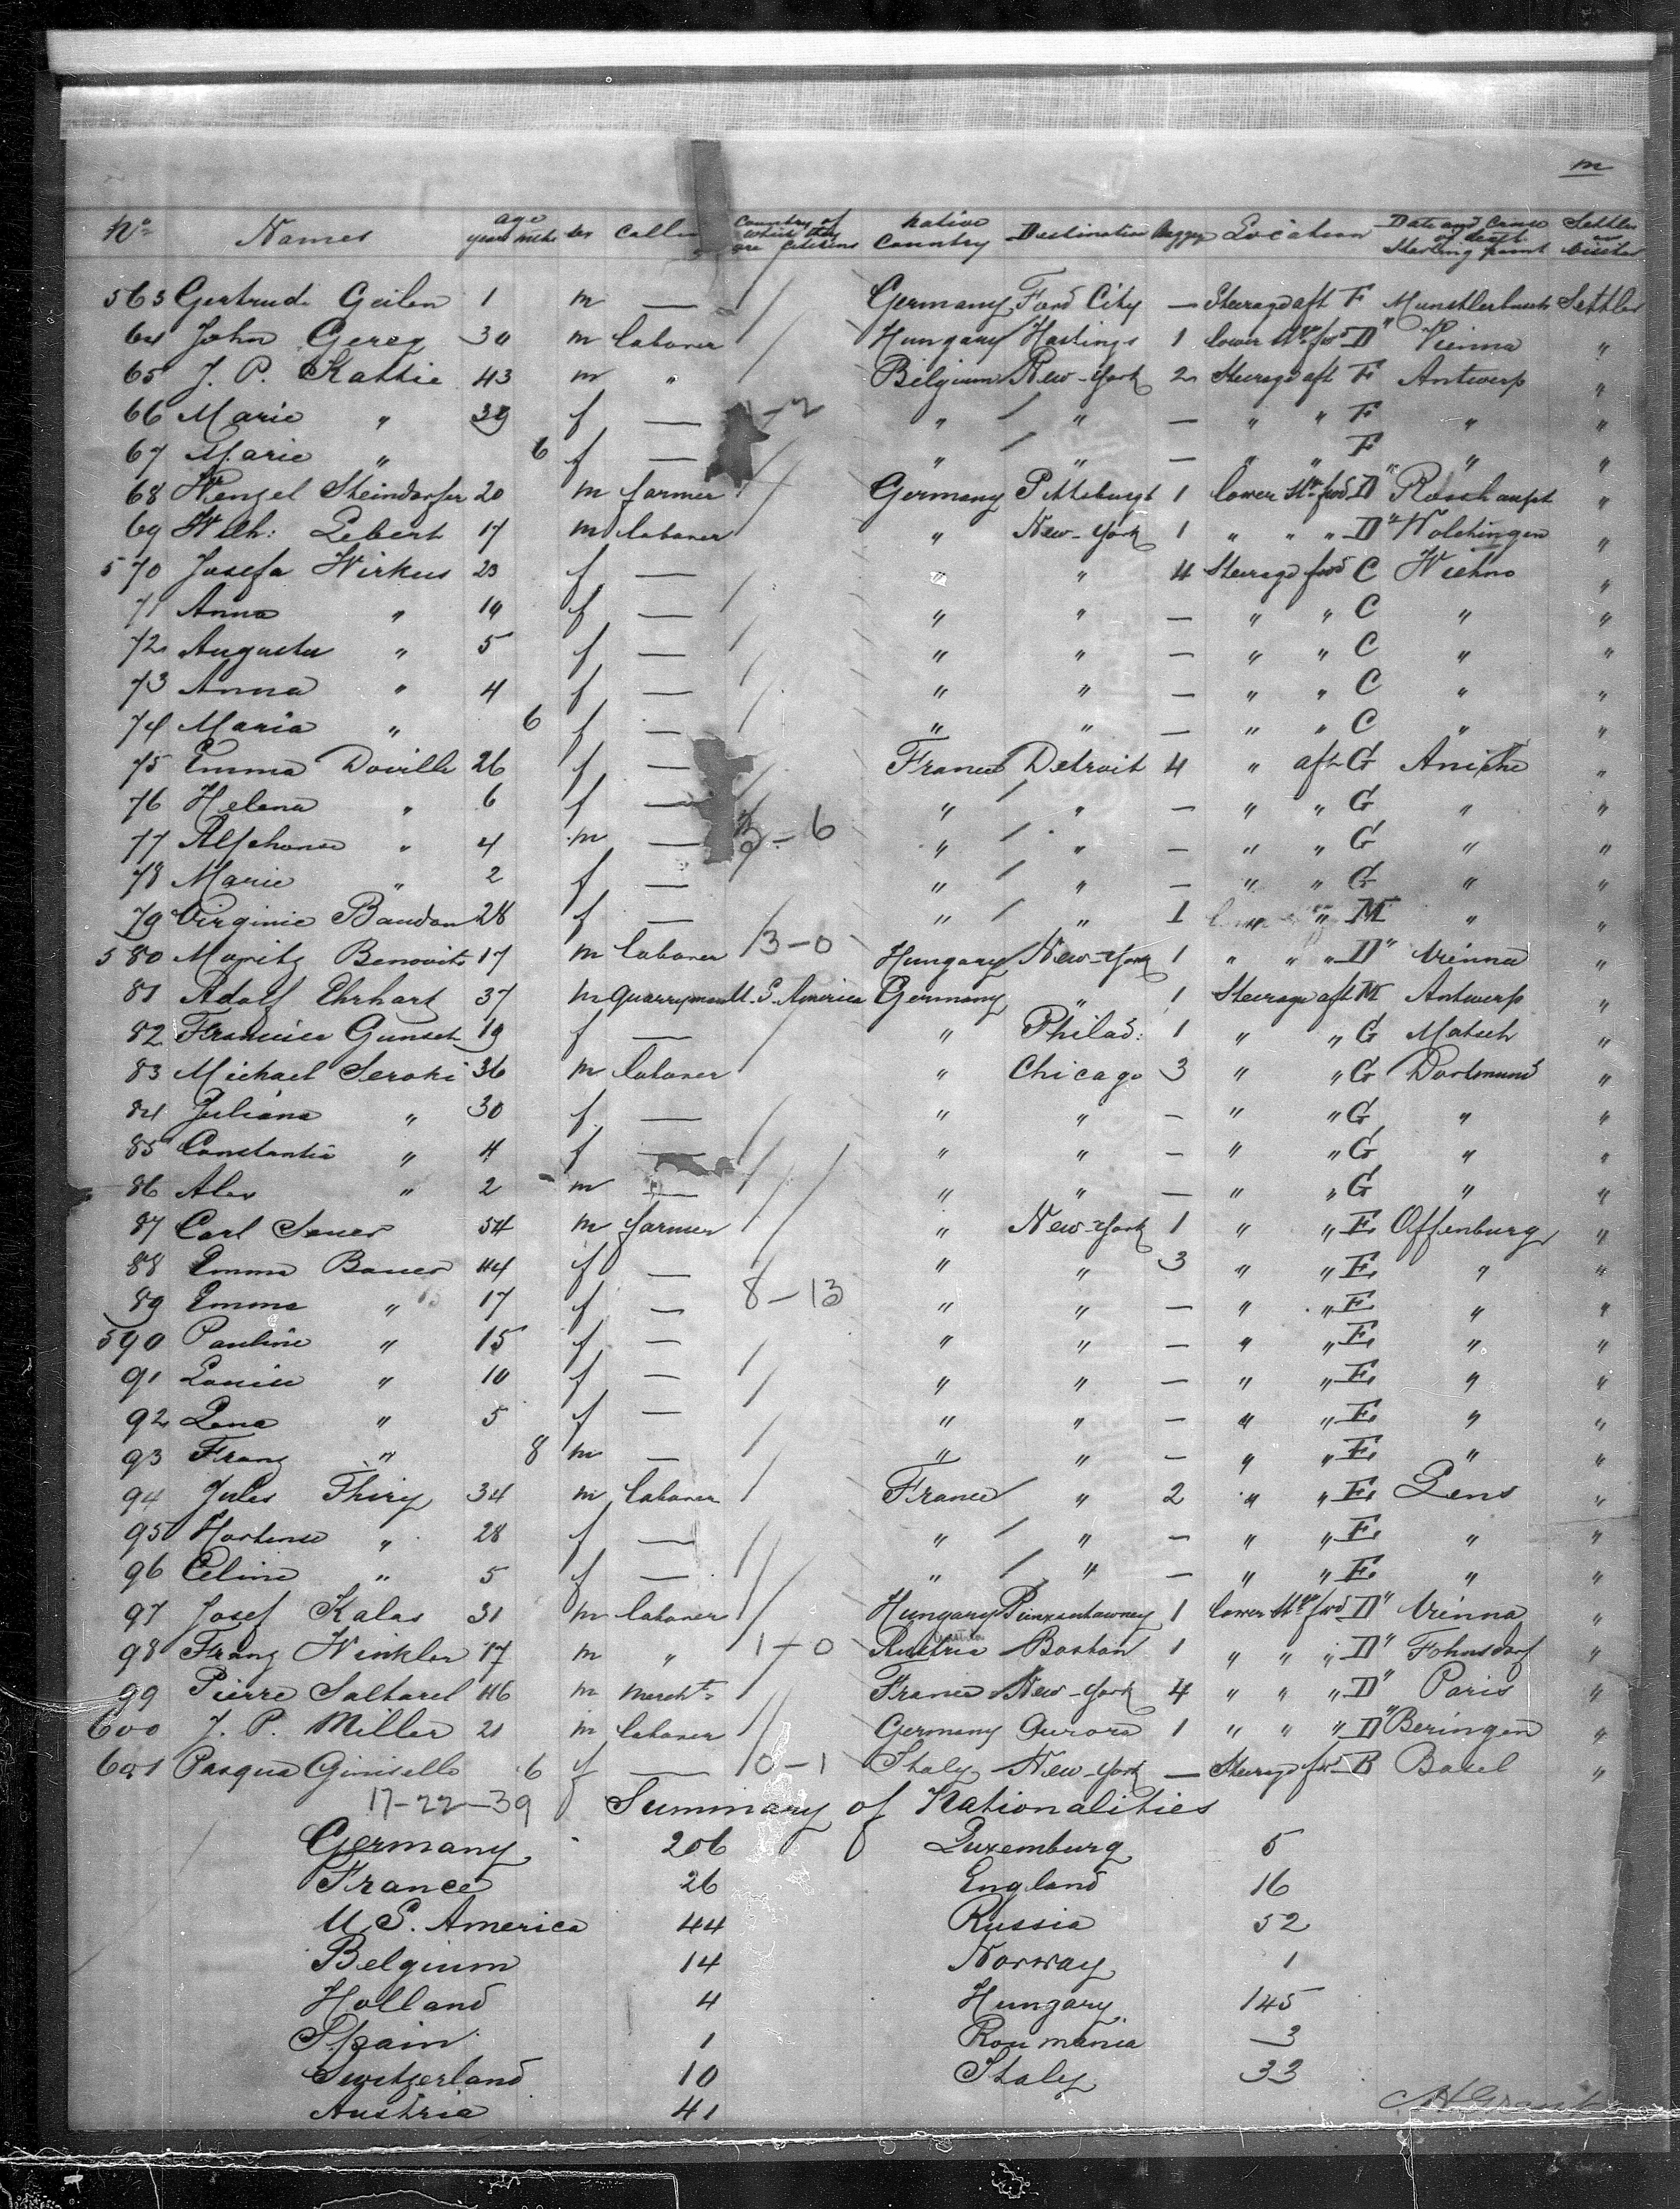 m
No Names age years mths sex Calling Country of which they are Citizens Native Country Destination Bagge Location Date and Cause of death Starting point Settler or visitor
563 Gertrude Geilen 1 m — Germany Ford City — Steerage aft F Settler
64 John Gerez 30 m laborer Hungary Hastings 1 lower Stge fwd D" Vienna "
65 J. P. Kattie 43 m " Belgium New-York 2 Steerage aft F Antwerp "
66 Marie " 39 f — 1-2 " " — " " F " "
67 Marie " 6 f — " " — " " F " "
68 Wenzel Steindorfer 20 m farmer Germany Pittsburgh 1 lower Stge fwd D" Rosshaupt "
69 Wilh: Lebert 17 m laborer " New-York 1 " " " D" Wolchingen "
570 Josefa Wirkus 23 f — " " 4 Steerage fwd C Wielno "
71 Anna " f — " " — " " C " "
72 Augusta " 5 f — " " — " " C " "
73 Anna " 4 f — " " — " " C " "
74 Maria " 6 f — " " — " " C " "
75 Emma Doville 26 f — France Detroit 4 " aft G Aniche "
76 Helena " 6 f — " " — " " G " "
77 Alphonse " 4 m — 2-6 " " — " " G " "
78 Marie " 2 f — " " — " " G " "
79 Virginie Baudon 28 f — " " 1 " M " "
580 Moritz Benovits 17 m laborer 3-0 Hungary New-York 1 " " " D" Vienna "
81 Adolf Ehrhart 37 m quarryman U.S. America Germany " 1 Steerage aft M Antwerp "
82 Francisca Gunset 19 f — " Philad: 1 " " G Matsch "
83 Michael Seroki 36 m laborer " Chicago 3 " " G Dortmund "
84 Juliana " 30 f — " " — " " G " "
85 Constantia " 4 f — " " — " " G " "
86 Alex " 2 m — " " — " " G " "
87 Carl Sauer 54 m farmer " New-York 1 " " E Offenburg "
88 Emma Bauer 44 f — " " 3 " " E " "
89 Emma " 17 f — 8-13 " " — " " E " "
590 Pauline " 15 f — " " — " " E " "
91 Louise " 10 f — " " — " " E " "
92 Lena " 5 f — " " — " " E " "
93 Franz " 8 m — " " — " " E " "
94 Jules Thiry 34 m laborer France " 2 " " E Lens "
95 Hortense " 28 f — " " — " " E " "
96 Celine " 5 f — " " — " " E " "
97 Josef Kalas 31 m laborer Hungary Punxsutawney 1 lower Stge fwd D" Vienna "
98 Franz Winkler 17 m " 1-0 Austria Boston 1 " " " D" Fohnsdorf "
99 Pierre Saltarel 46 m mercht France New-York 4 " " " D" Paris "
600 J. P. Miller 21 m laborer Germany Aurora 1 " " " D" Beringen "
601 Pasqua Ginisello 6 f — 0-1 Italy New-York — Steerge fwd B Basel "
17-22-39 Summary of Nationalities
Germany 206 Luxemburg 5
France 26 England 16
U.S. America 44 Russia 52
Belgium 14 Norway 1
Holland 4 Hungary 145
Spain 1 Roumania 3
Switzerland 10 Italy 33
Austria 41